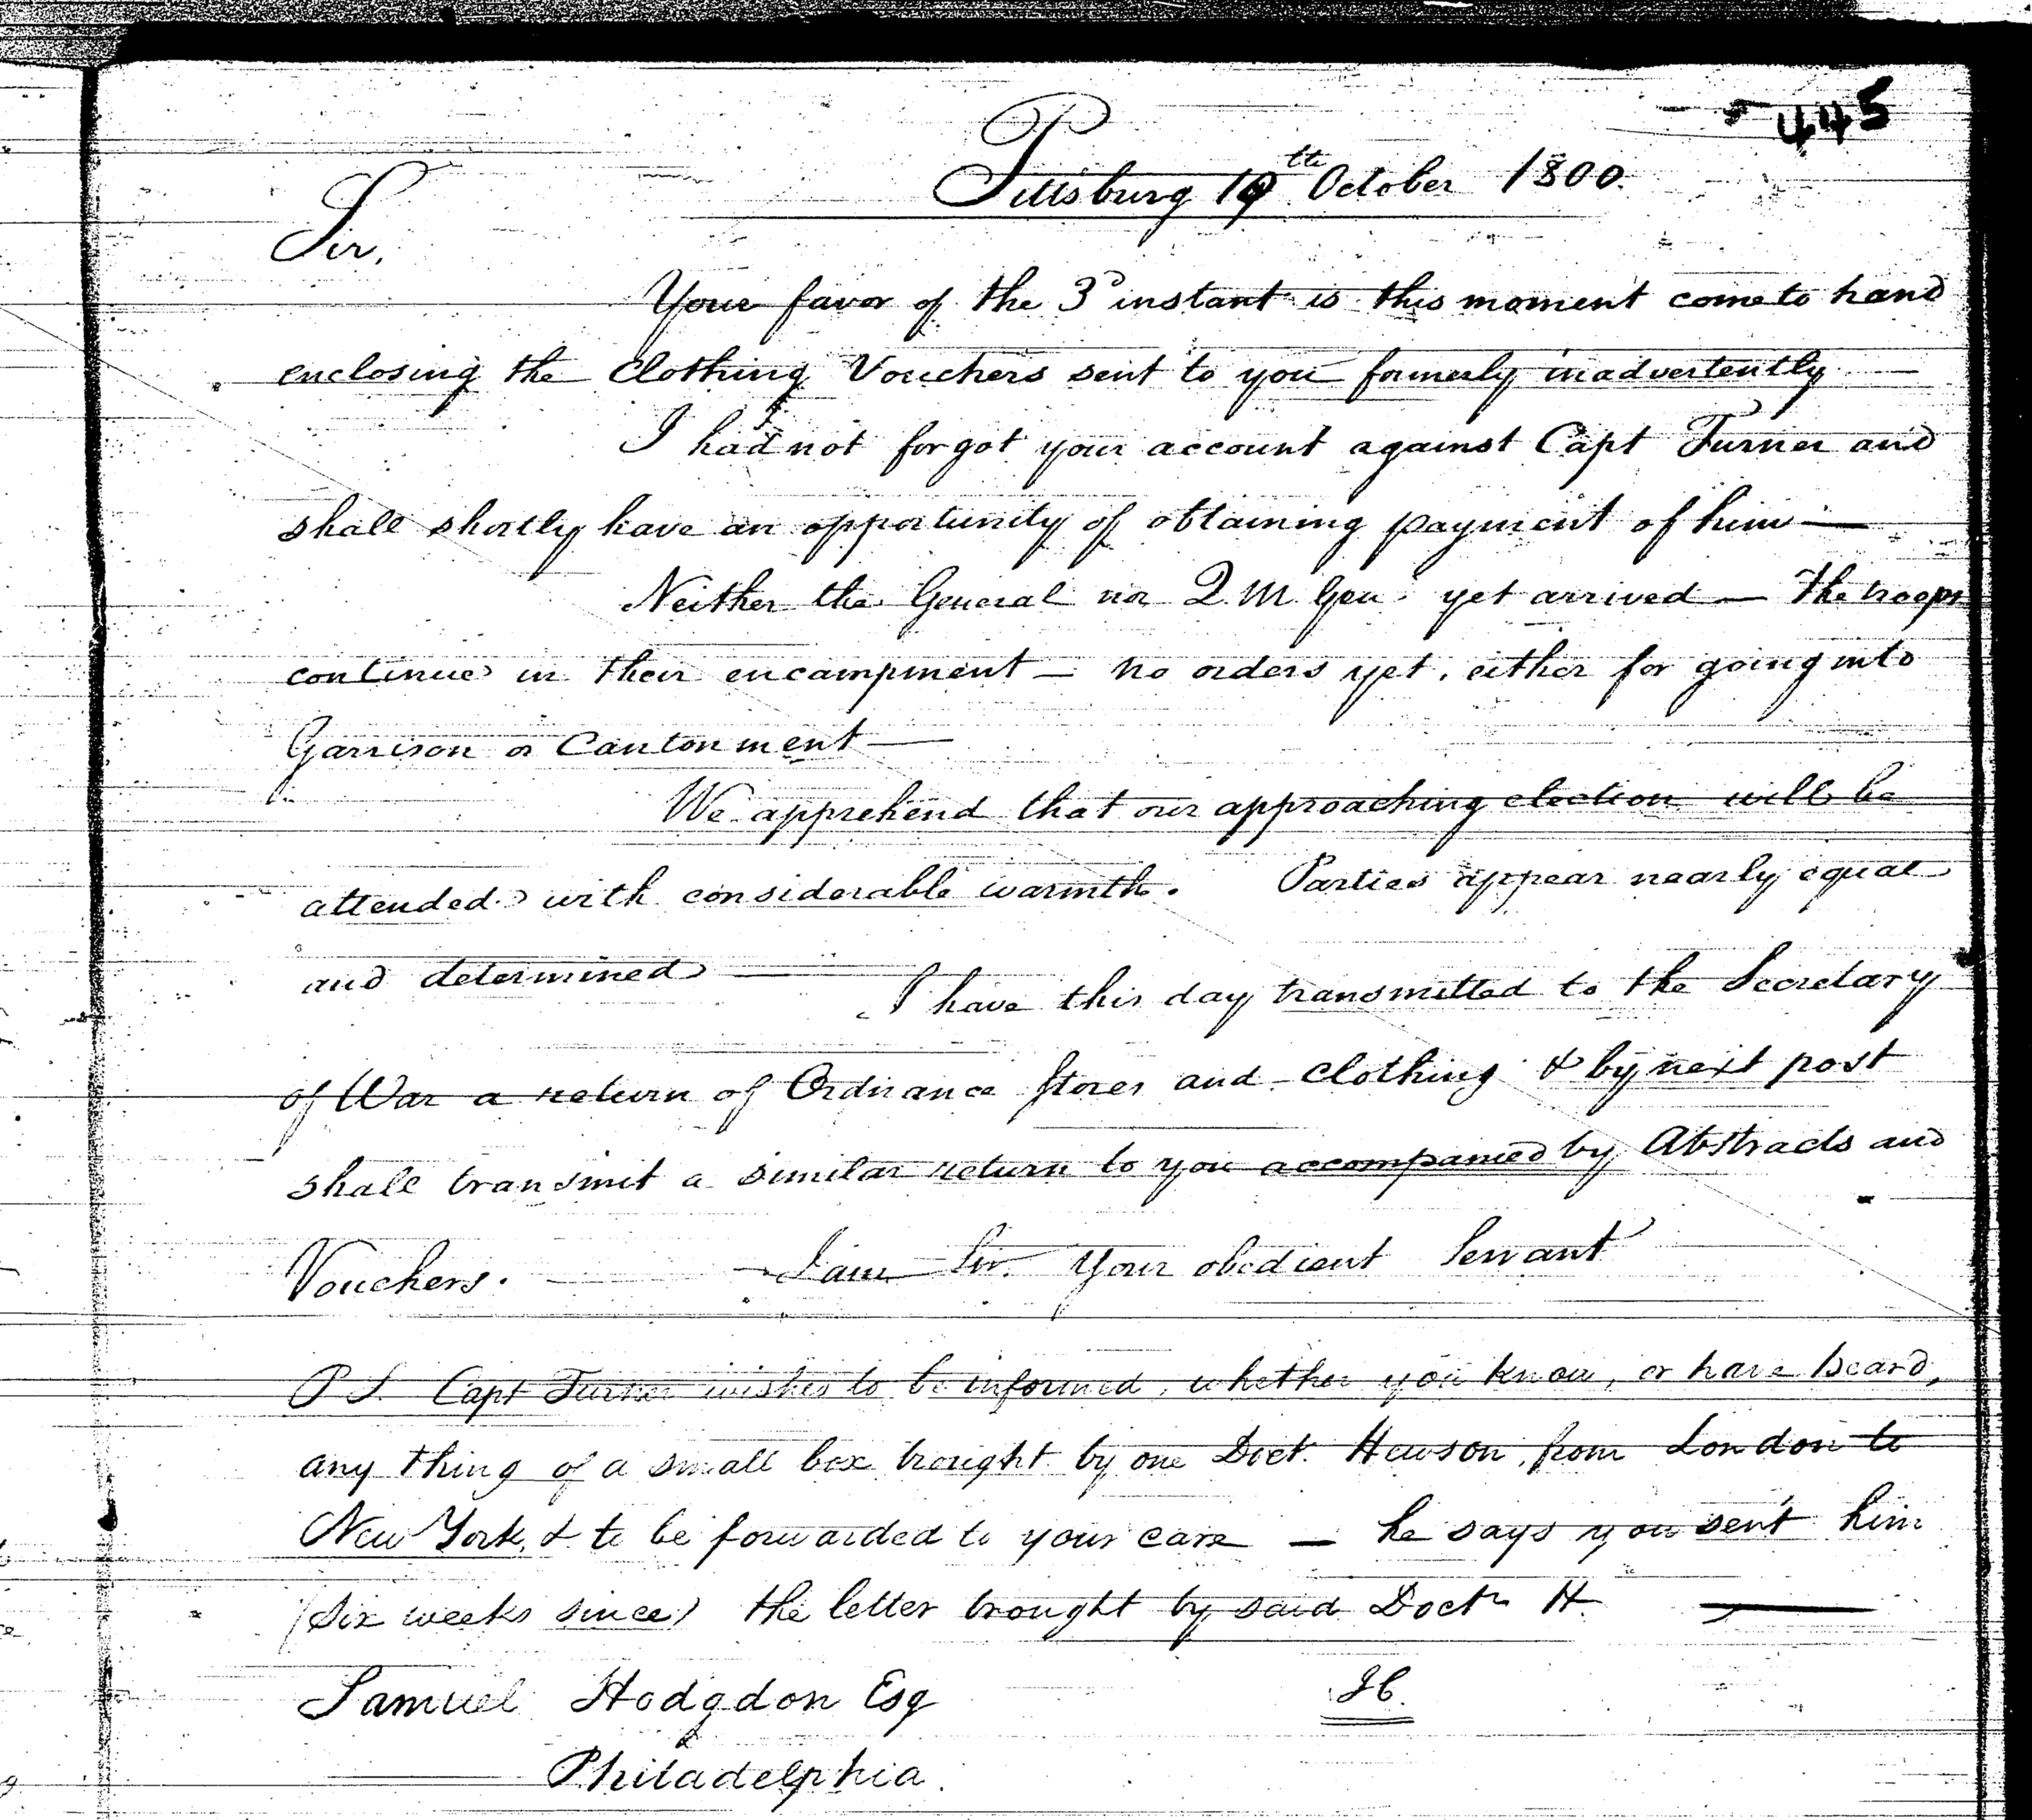 445
Pittsburg 10th October 1800.
Sir,
Your favor of the 3d instant is this moment come to hand
enclosing the Clothing Vouchers sent to you formerly inadvertently
I had not forgot your account against Capt Turner and
shall shortly have an opportunity of obtaining payment of him —
Neither the General nor Q M Gen yet arrived — The troops
continue in their encampment — no orders yet, either for going into
Garrison or Cantonment —
We apprehend that our approaching election will be
attended with considerable warmth. Parties appear nearly equal
and determined —
I have this day transmitted to the Secretary
of War a return of Ordnance Stores and clothing & by next post
shall transmit a similar return to you accompanied by Abstracts and
Vouchers. — I am Sir. Your obedient Servant
P S. Capt Turner wishes to be informed, whether you know, or have heard,
any thing of a small box brought by one Doct. Hewson, from London to
New York, & to be forwarded to your care — he says you sent him
(six weeks since) the letter brought by said Doctr H. —
Samuel Hodgdon Esq
Philadelphia.